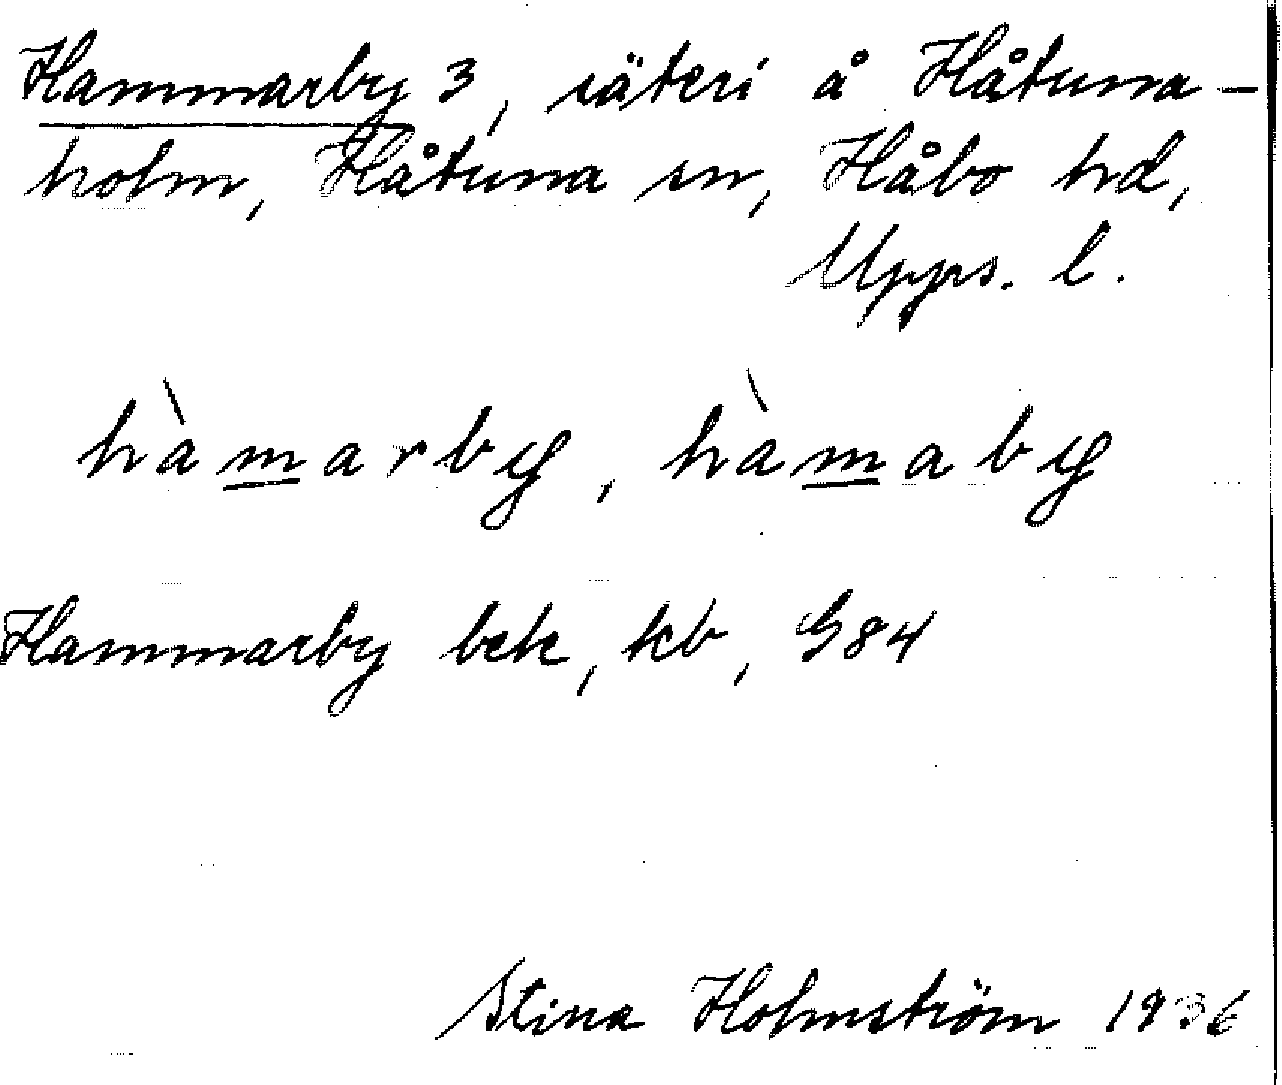 Hammarby 3, säteri å Håtuna-
holm, Håtuna sn, Håbo hd,
Upps. l.
hàmarby, hàmaby
Hammarby bek, kb, G84
Stina Holmström 1936